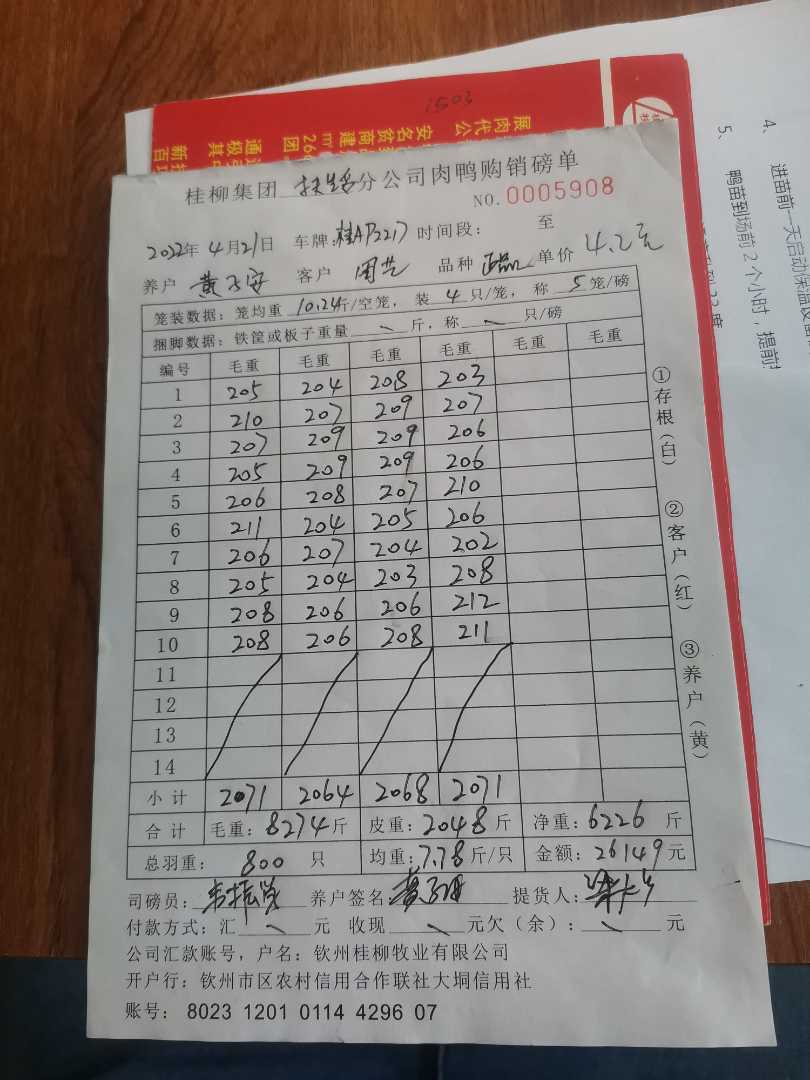 1503
展肉代公
安名贫商建
m² 264
团
通过
级
其中
新技
百
4、 进苗前一天启动保温设
5、 鸭苗到场前2个小时，提前
桂柳集团 扶绥 分公司肉鸭购销磅单
NO.0005908
2022年4月21日 车牌：桂A 时间段： 至
养户 客户 品种 正品 单价 4.2元
笼装数据：笼均重 10.24斤/空笼，装 4 只/笼，称 5 笼/磅
捆脚数据：铁筐或板子重量 \ 斤，称 \ 只/磅
编号 毛重 毛重 毛重 毛重 毛重 毛重
1 205 204 208 203
2 210 207 209 207
3 207 209 209 206
4 205 209 209 206
5 206 208 207 210
6 211 204 205 206
7 206 207 204 202
8 205 204 203 208
9 208 206 206 212
10 208 206 208 211
11
12
13
14
小计 2071 2064 2068 2071
合计 毛重：8274斤 皮重：2048斤 净重：6226斤
总羽重： 800 只 均重：7.78斤/只 金额：26149元
司磅员： 养户签名 提货人：
付款方式：汇 \ 元 收现 \ 元欠（余）： \ 元
公司汇款账号，户名：钦州桂柳牧业有限公司
开户行：钦州市区农村信用合作联社大垌信用社
账号：8023 1201 0114 4296 07
①存根（白） ②客户（红） ③养户（黄）